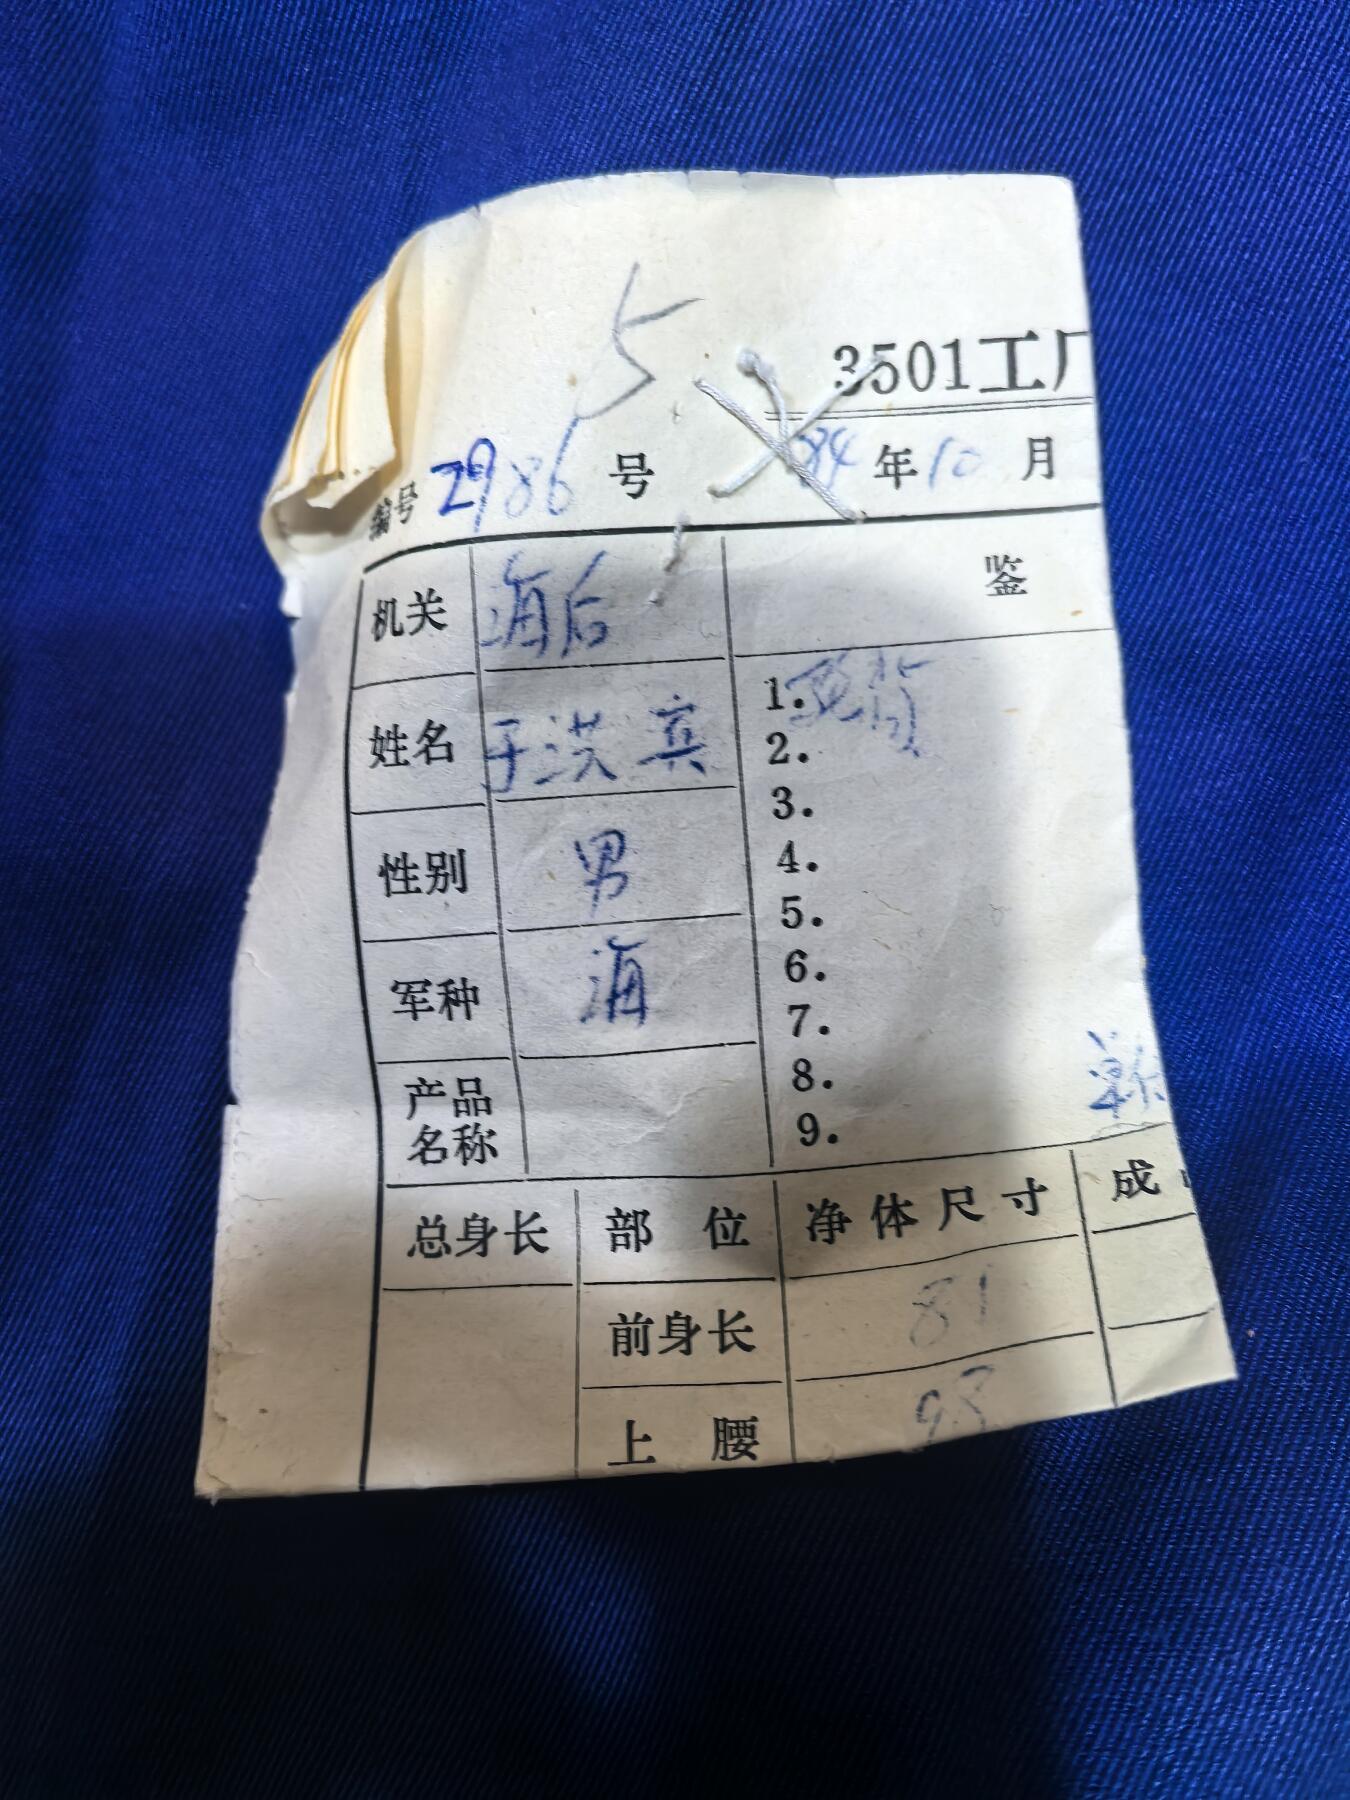 5
3501工厂
编号 2986 号 84 年 10 月
机关 海后 鉴
姓名 于洪宾
性别 男
军种 海
产品名称
1.
2.
3.
4.
5.
6.
7.
8.
9.
总身长 部位 净体尺寸 成
前身长 81
上腰 93